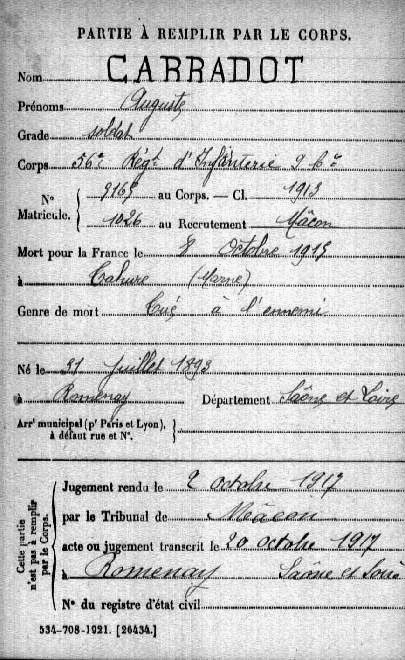 PARTIE À REMPLIR PAR LE CORPS.
Nom CARRADOT
Prénoms Auguste
Grade soldat
Corps 56e Régt d'Infanterie 9 Cie
N° Matricule. { 9165 au Corps. — Cl. 1913
1026 au Recrutement Mâcon
Mort pour la France le 8 Octobre 1915
à Tahure (Marne)
Genre de mort Tué à l'ennemi
Né le 31 juillet 1893
à Romenay Département Saône et Loire
Arrt municipal (pr Paris et Lyon), à défaut rue et N°. }
Cette partie n'est pas à remplir par le Corps.
Jugement rendu le 2 octobre 1917
par le Tribunal de Mâcon
acte ou jugement transcrit le 20 octobre 1917
à Romenay Saône et Loire
N° du registre d'état civil
534-708-1921. [26434.]